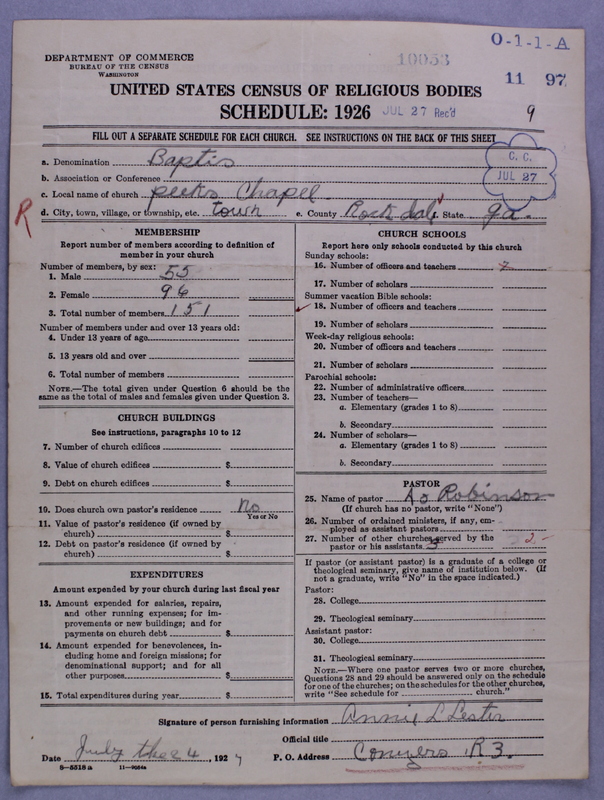 O-1-1-A
DEPARTMENT OF COMMERCE
BUREAU OF THE CENSUS
WASHINGTON
10053
11 97
UNITED STATES CENSUS OF RELIGIOUS BODIES
SCHEDULE: 1926 JUL 27 Rec'd 9
FILL OUT A SEPARATE SCHEDULE FOR EACH CHURCH. SEE INSTRUCTIONS ON THE BACK OF THIS SHEET
C. C.
JUL 27
a. Denomination Baptis
b. Association or Conference
c. Local name of church peeks Chapel
R
d. City, town, village, or township, etc. town e. County Rock dale State ga.
MEMBERSHIP
Report number of members according to definition of
member in your church
Number of members, by sex:
1. Male 55
2. Female 96
3. Total number of members 151
Number of members under and over 13 years old:
4. Under 13 years of age
5. 13 years old and over
6. Total number of members
NOTE.—The total given under Question 6 should be the
same as the total of males and females given under Question 3.
CHURCH BUILDINGS
See instructions, paragraphs 10 to 12
7. Number of church edifices
8. Value of church edifices $
9. Debt on church edifices $
10. Does church own pastor's residence No
Yes or No
11. Value of pastor's residence (if owned by
church) $
12. Debt on pastor's residence (if owned by
church) $
EXPENDITURES
Amount expended by your church during last fiscal year
13. Amount expended for salaries, repairs,
and other running expenses; for im-
provements or new buildings; and for
payments on church debt $
14. Amount expended for benevolences, in-
cluding home and foreign missions; for
denominational support; and for all
other purposes $
15. Total expenditures during year $
CHURCH SCHOOLS
Report here only schools conducted by this church
Sunday schools:
16. Number of officers and teachers 7
17. Number of scholars
Summer vacation Bible schools:
18. Number of officers and teachers
19. Number of scholars
Week-day religious schools:
20. Number of officers and teachers
21. Number of scholars
Parochial schools:
22. Number of administrative officers
23. Number of teachers—
a. Elementary (grades 1 to 8)
b. Secondary
24. Number of scholars—
a. Elementary (grades 1 to 8)
b. Secondary
PASTOR
25. Name of pastor Robinson
(If church has no pastor, write "None")
26. Number of ordained ministers, if any, em-
ployed as assistant pastors
27. Number of other churches served by the
pastor or his assistants 3 2-
If pastor (or assistant pastor) is a graduate of a college or
theological seminary, give name of institution below. (If
not a graduate, write "No" in the space indicated.)
Pastor:
28. College
29. Theological seminary
Assistant pastor:
30. College
31. Theological seminary
NOTE.—Where one pastor serves two or more churches,
Questions 28 and 29 should be answered only on the schedule
for one of the churches; on the schedules for the other churches,
write "See schedule for church."
Signature of person furnishing information Annie L Lester
Official title
Date July thee 4, 1927 P. O. Address Conyers R3.
8—5518 a 11—9084a